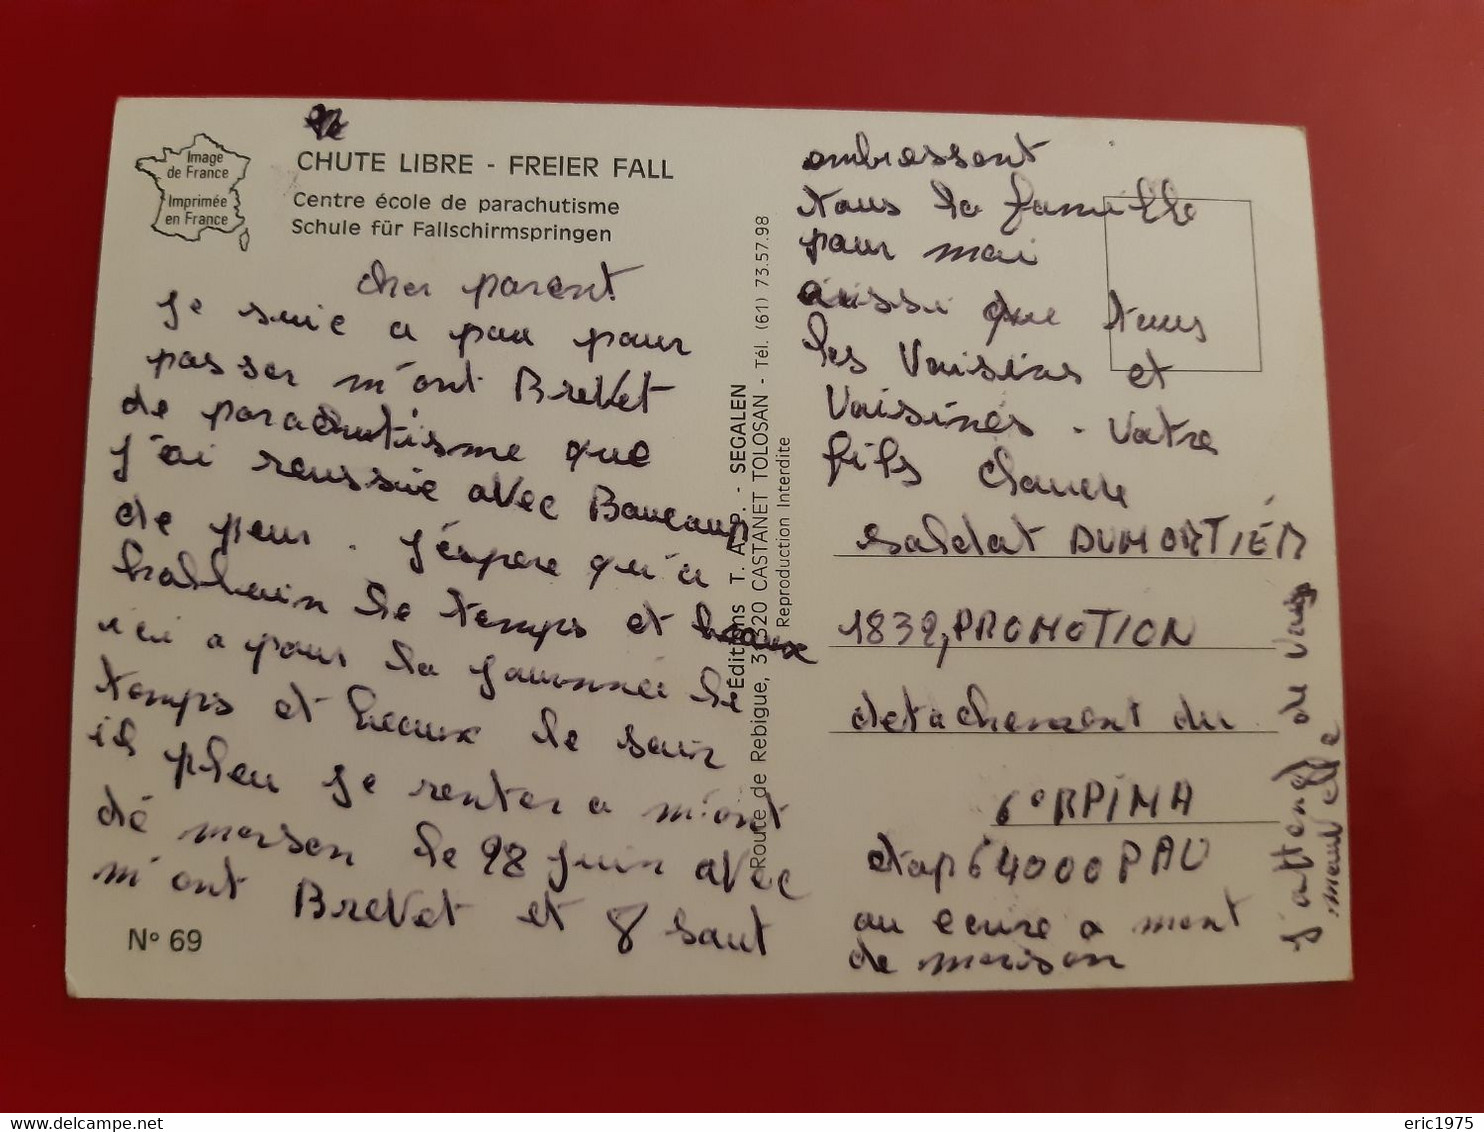 Image
de France
Imprimée
en France
CHUTE LIBRE - FREIER FALL
Centre école de parachutisme
Schule für Fallschirmspringen
cher parent
Je suie a pau pour
passer m'ont BreVet
de parachutisme que
j'ai reussie avec Baucaup
de peur. J'éspere qu'a
halluin le temps et beaux
ici a pour la journnéi le
temps et beaux le soir
il pleu je renter a m'ont
dé morsen le 28 juin avec
m'ont BreVet et 8 saut
N° 69
Éditions T. A. P. - SEGALEN
Route de Rebigue, 31320 CASTANET TOLOSAN - Tél. (61) 73.57.98
Reproduction Interdite
ambrassent
tous la famille
pour moi
aissi que tous
les Voisins et
Voisines. Votre
fils
soldat DUMORTIER
1832, PROMOTION
detachement du
6° RPIMA
etap 64000 PAU
au ecure a mont
de morison
J'attend de Vous